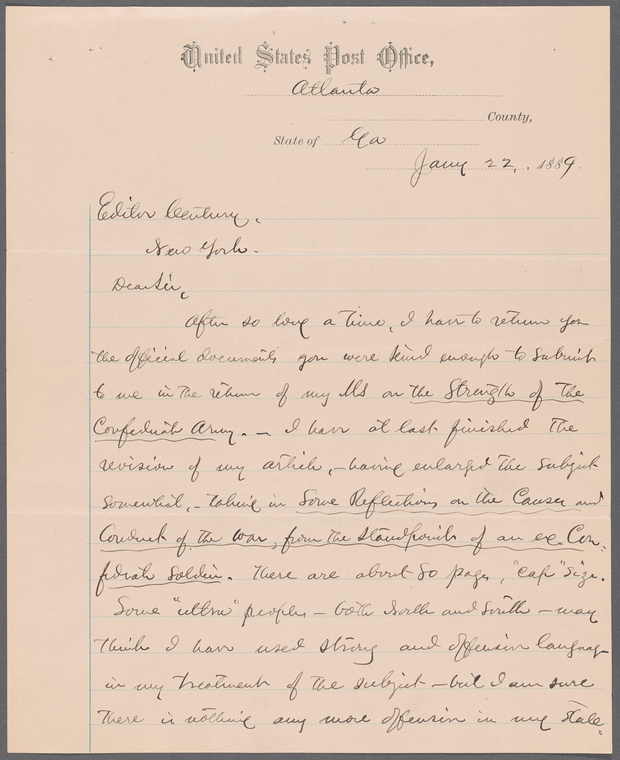 United States Post Office,
Atlanta
County,
State of Ga
Jany 22, 1889.
Editor Century,
New York.
Dear Sir,
After so long a time, I have to return you
the official documents you were kind enough to submit
to me in the return of my MS on the Strength of the
Confederate Army. — I have at last finished the
revision of my article, — having enlarged the subject
somewhat, — taking in Some Reflections on the Causes and
Conduct of the War, from the standpoint of an ex-Con-
federate Soldier. There are about 80 pages, "cap" size.
Some "ultra" peoples — both North and South — may
think I have used strong and offensive language
in my treatment of the subject — but I am sure
there is nothing any more offensive in my state=